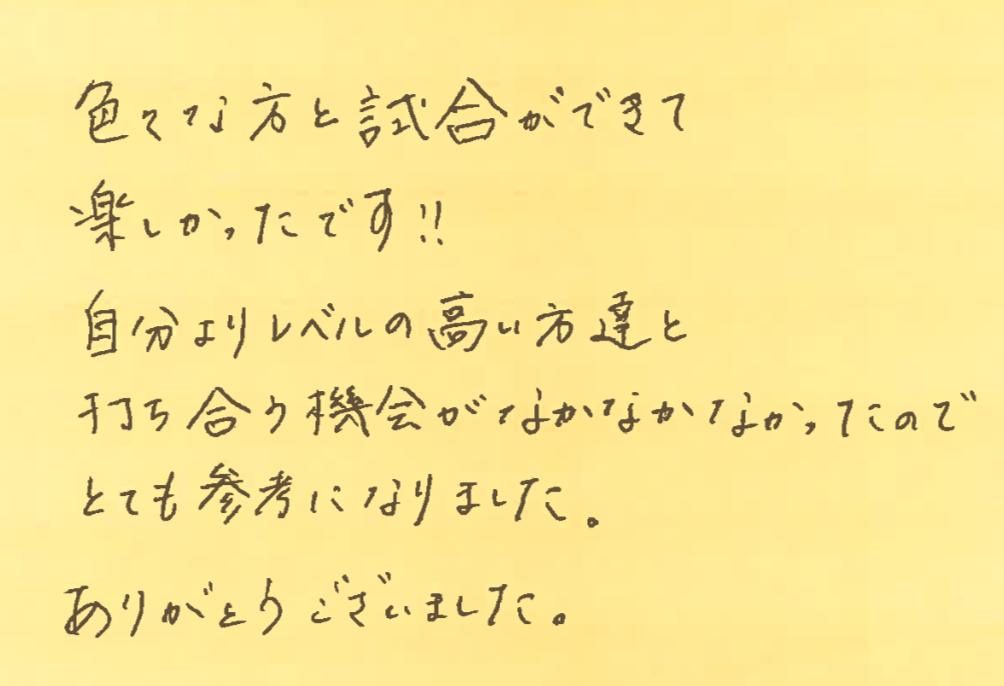 色々な方と試合ができて
楽しかったです!!
自分よりレベルの高い方達と
打ち合う機会がなかなかなかったので
とても参考になりました。
ありがとうございました。